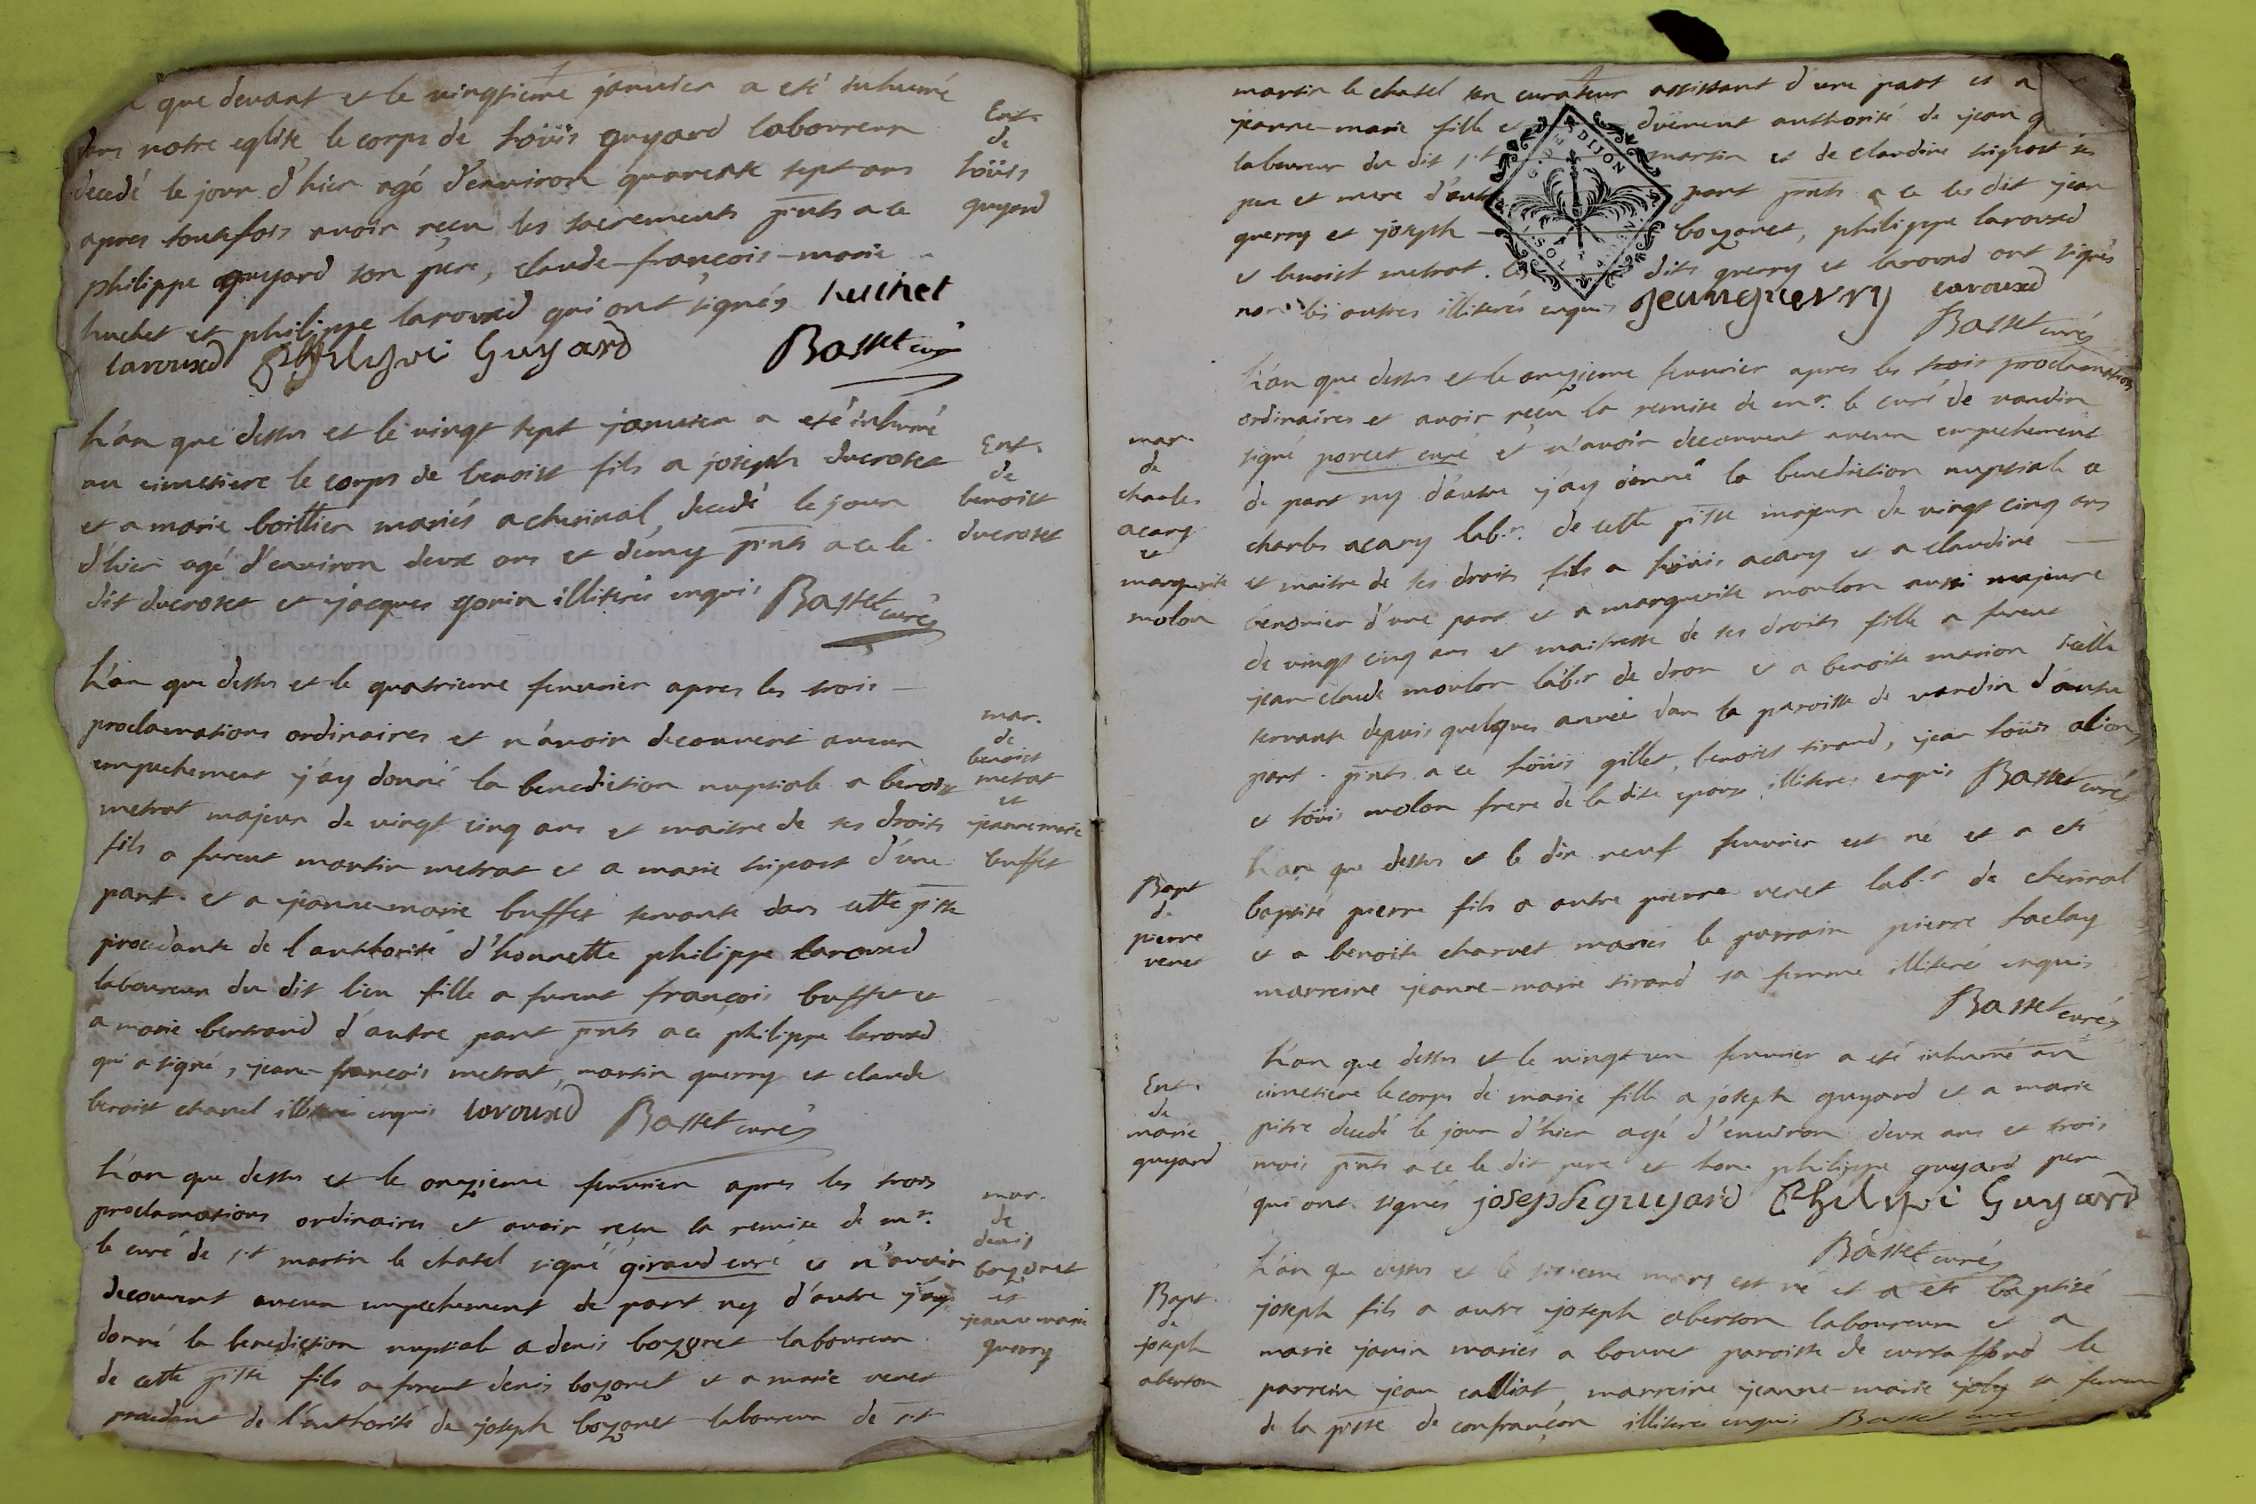 que devant et le vingtieme janvier a eté inhumé
dans notre eglise le corps de loüis guyard laboureur
decedé le jour d'hier agé d'environ quarente sept ans
apres toutefois avoir reçu les sacrements pnts a ce
philippe guyard son pere, claude-françois-marie
huchet et philippe larouxd qui ont signés huchet
larouxd Phelipe Guyard Basset curé
Ent.
de
loüis
guyard
l'an que dessus et le vingt sept janvier a eté inhumé
au cimetiere le corps de benoist fils a joseph ducroset
et a marie boittier mariés a cherinal, decedé le jour
d'hier agé d'environ deux ans et demy pnts a ce le
dit ducroset et jacques gonin illiterés enquis Basset curé
Ent.
de
benoist
ducroset
l'an que dessus et le quatrieme feuvrier apres les trois
proclamations ordinaires et n'avoir decouvert aucun
empechement j'ay donné la benediction nuptiale a benoist
metrat majeur de vingt cinq ans et maitre de ses droits
fils a furent martin metrat et a marie tripost d'une
part. et a jeanne-marie buffet servante dans cette pisse
procedante de l'authorité d'honnette philippe larouxd
laboureur du dit lieu fille a furent françois buffet et
a marie bertrand d'autre part pnts a ce philippe larouxd
qui a signé, jean-françois metrat, martin guerry et claude
benoist chanel illiterés enquis larouxd Basset curé
mar.
de
benoist
metrat
et
jeanne marie
buffet
l'an que dessus et le onzieme feuvrier apres les trois
proclamations ordinaires et avoir reçu la remise de mr.
le curé de st martin le chatel signé giraud curé et n'avoir
decouvert aucun empechement de part ny d'autre j'ay
donné la benediction nuptiale a denis bozonet laboureur
de cette pisse fils a furent denis bozonet et a marie venet
procedant de l'authorité de joseph bozonet laboureur de st
mar.
de
denis
bozonet
et
jeanne marie
guerry
martin le chatel son curateur assistant d'une part et a
jeanne-marie fille et duement authorisé de jean g
laboureur du dit st martin et de claudine tripost ses
pere et mere d'autre part pnts a ce les dit jean
guerry et joseph bozonet, philippe larouxd
et benoist metrat. les dits guerry et larouxd ont signés
non les autres illiterés enquis jean guerry larouxd
Basset curé
G. DE DIJON
SOLS
l'an que dessus et le onzieme feuvrier apres les trois proclamations
ordinaires et avoir reçu la remise de mr. le curé de vandin
signé porcet curé et n'avoir decouvert aucun empechement
de part ny d'autre j'ay donné la benediction nuptiale a
charles acary labr. de cette pisse majeur de vingt cinq ans
et maitre de ses droits fils a loüis acary et a claudine
benonier d'une part et a marguerite moulon aussi majeure
de vingt cinq ans et maitresse de ses droits fille a furent
jean-claude moulon labr de dron et a benoite marion icelle
servante depuis quelques année dans la paroisse de vandin d'autre
part. pnts a ce loüis gillet, benoist tirand, jean loüis alion
et loüis molon frere de la dite epouse illiteres enquis Basset curé
mar.
de
charles
acary
et
marguerite
molon
l'an que dessus et le dix neuf feuvrier est né et a eté
baptisé pierre fils a autre pierre venet labr de cherinal
et a benoite charvet mariés le parrain pierre taclay
marreine jeanne-marie tirand sa femme illiteré enquis
Basset curé
Bapt
de
pierre
venet
l'an que dessus et le vingt un feuvrier a eté inhumé au
cimetiere le corps de marie fille a joseph guyard et a marie
pitre decedé le jour d'hier agé d'environ deux ans et trois
mois pnts a ce le dit pere et hon. philippe guyard pere
qui ont signés joseph guyard Phelipe Guyard
Basset curé
Ent.
de
marie
guyard
l'an que dessus et le sixieme mars est né et a eté baptisé
joseph fils a autre joseph aberton laboureur et a
marie janin mariés a bouvet paroisse de curtaffond le
parrein jean calliat, marreine jeanne-marie joly sa femme
de la pisse de confrançon illiteres enquis Basset curé
Bapt.
de
joseph
aberton